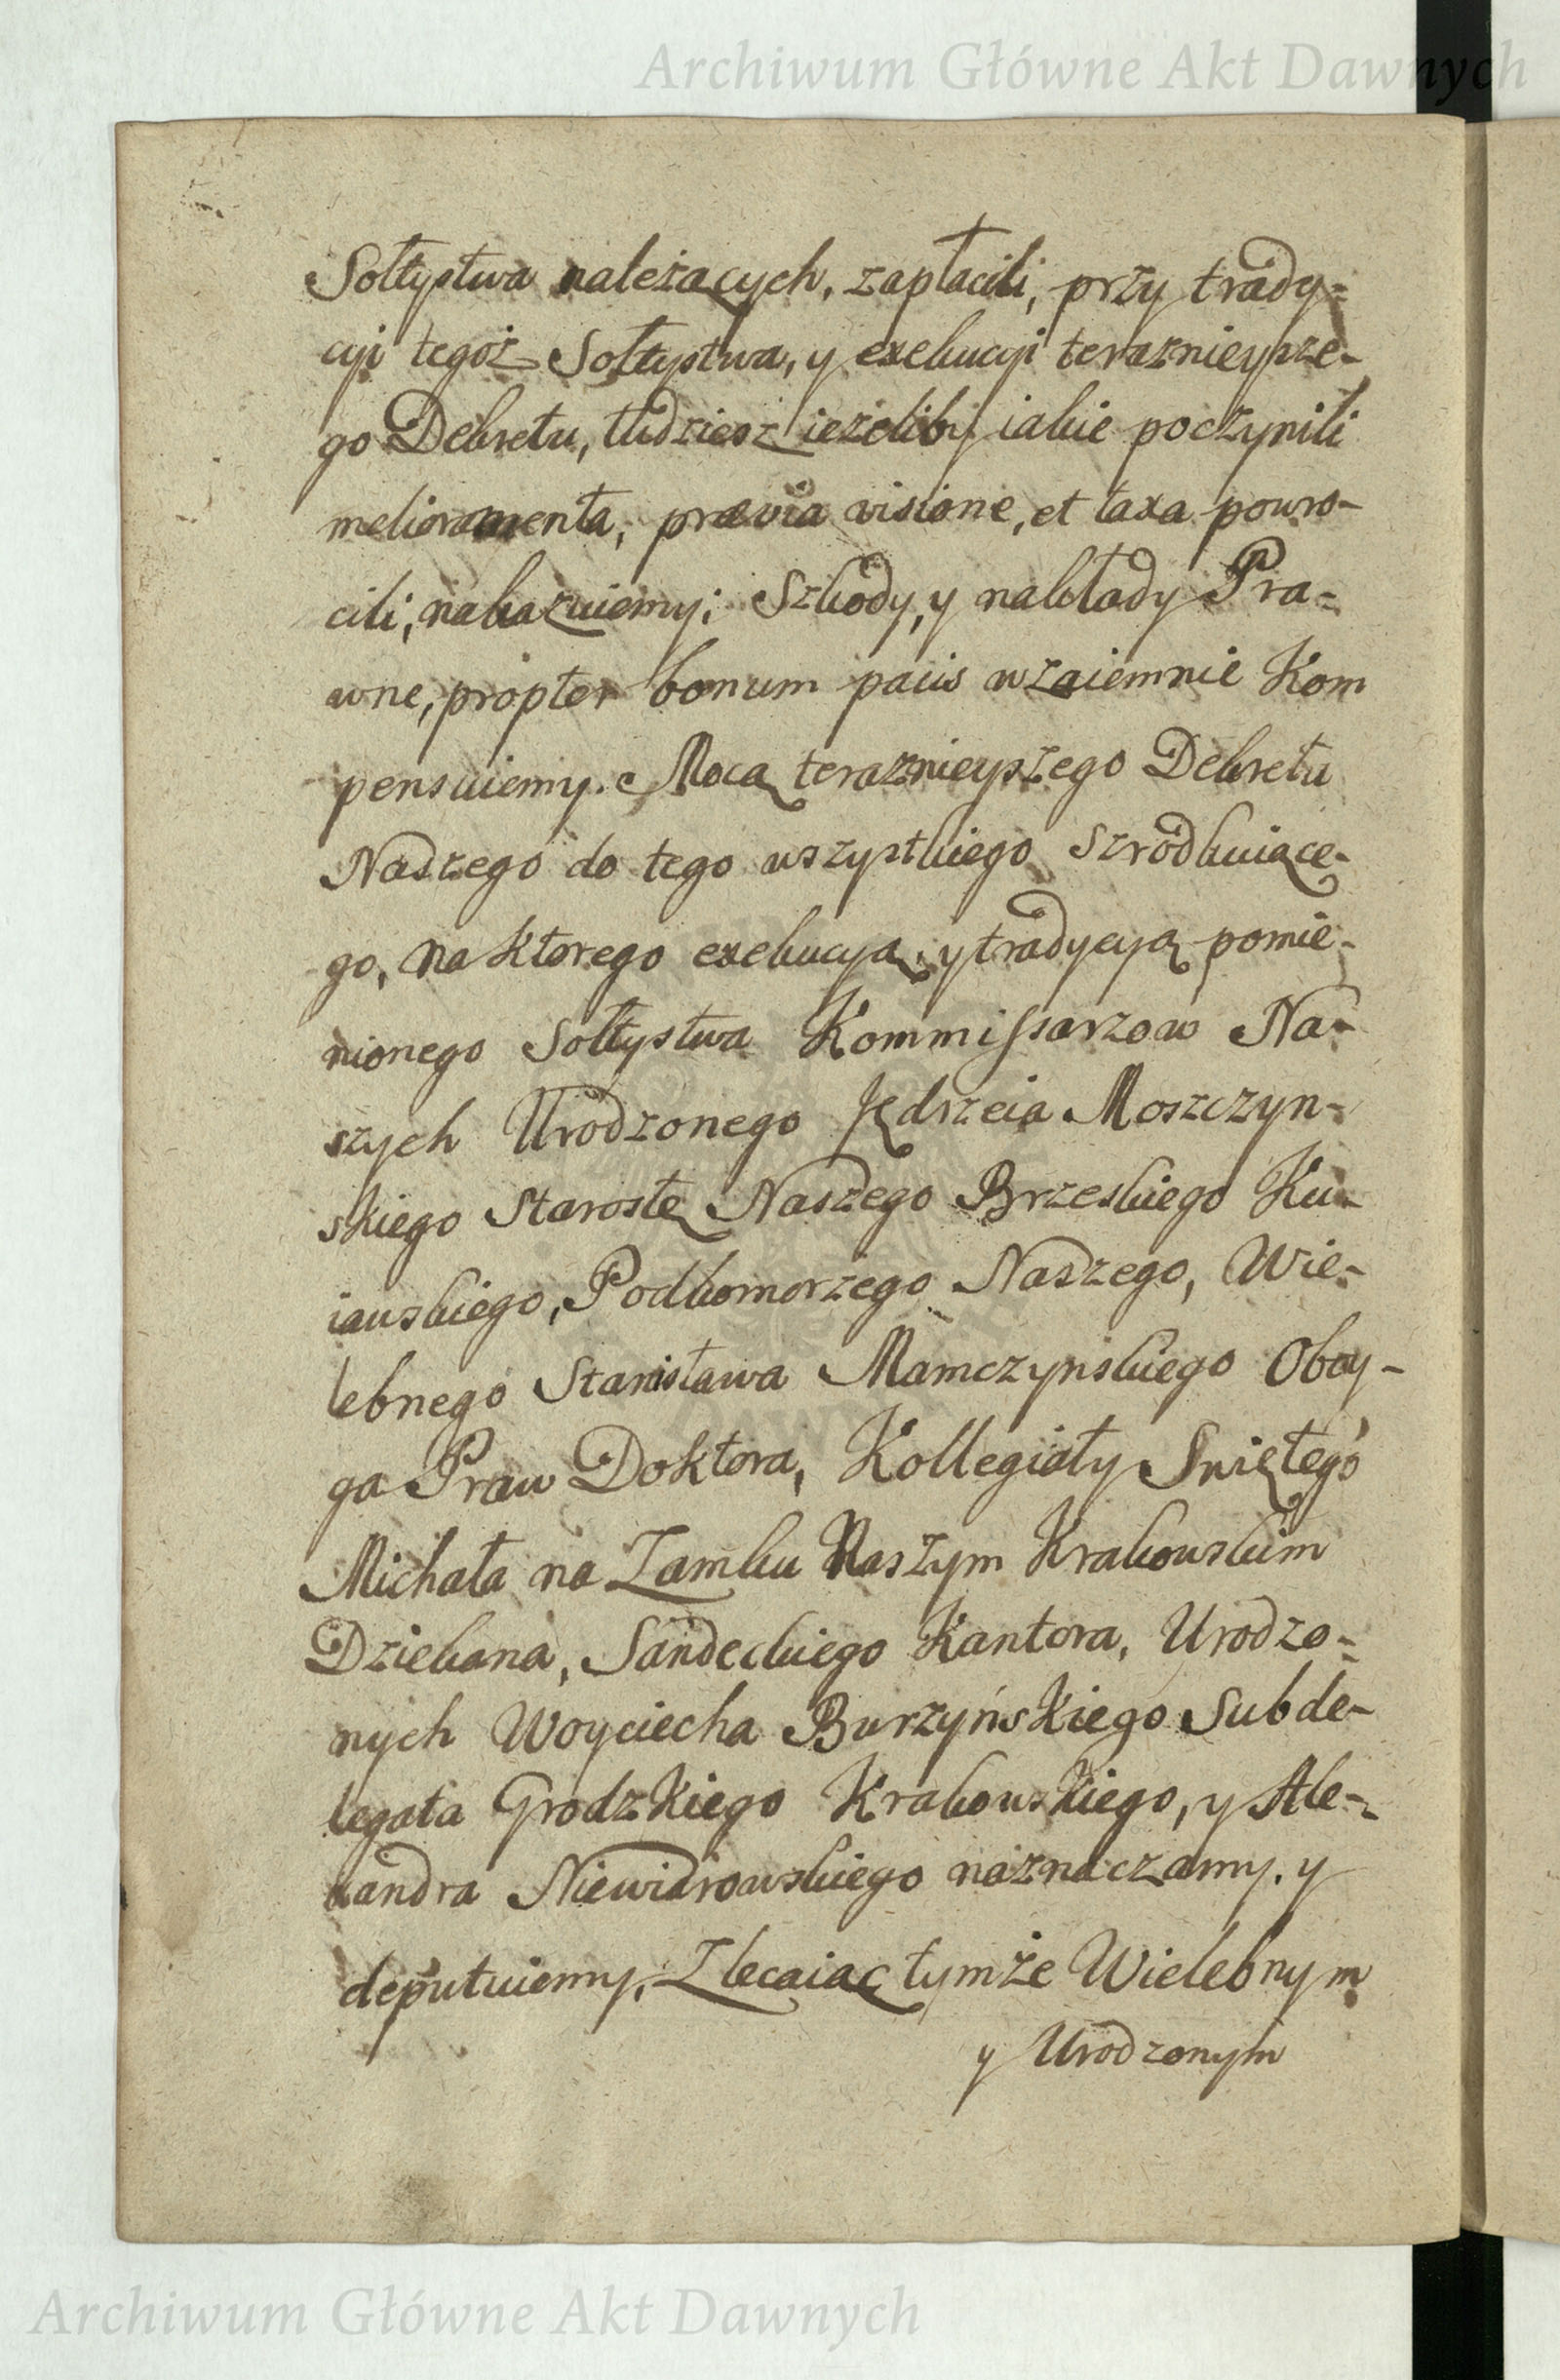 Archiwum Główne Akt Dawnych
Sołtystwa należących, zapłacili, przy trady=
cyi tegoż Sołtystwa, y exekucyi teraznieysze-
go Dekretu, tudziesz ieżeliby iakie poczynili
melioramenta, prævia visione, et taxa powro-
cili, nakazuiemy; Szkody, y nakłady Pra=
wne, propter bonum pacis wzaiemnie Kom
pensuiemy. Mocą teraznieyszego Dekretu
Naszego do tego wszystkiego szrodkuiące-
go, na ktorego exekucyą, y tradycyą pomie-
nionego Sołtystwa Kommissarzow Na-
szych Urodzonego Jędrzeia Moszczyn-
skiego Starostę Naszego Brzeskiego Ku-
iawskiego, Podkomorzego Naszego, Wie-
lebnego Stanisława Mamczynskiego Oboy-
ga Praw Doktora, Kollegiaty Swiętego
Michała na Zamku Naszym Krakowskim
Dziekana, Sandeckiego Kantora, Urodzo=
nych Woyciecha Burzyńskiego Subde-
legata Grodzkiego Krakowskiego, y Ale-
xandra Niewiarowskiego naznaczamy, y
deputuiemy, Zlecaiąc tymże Wielebnym
y Urodzonym
Archiwum Główne Akt Dawnych